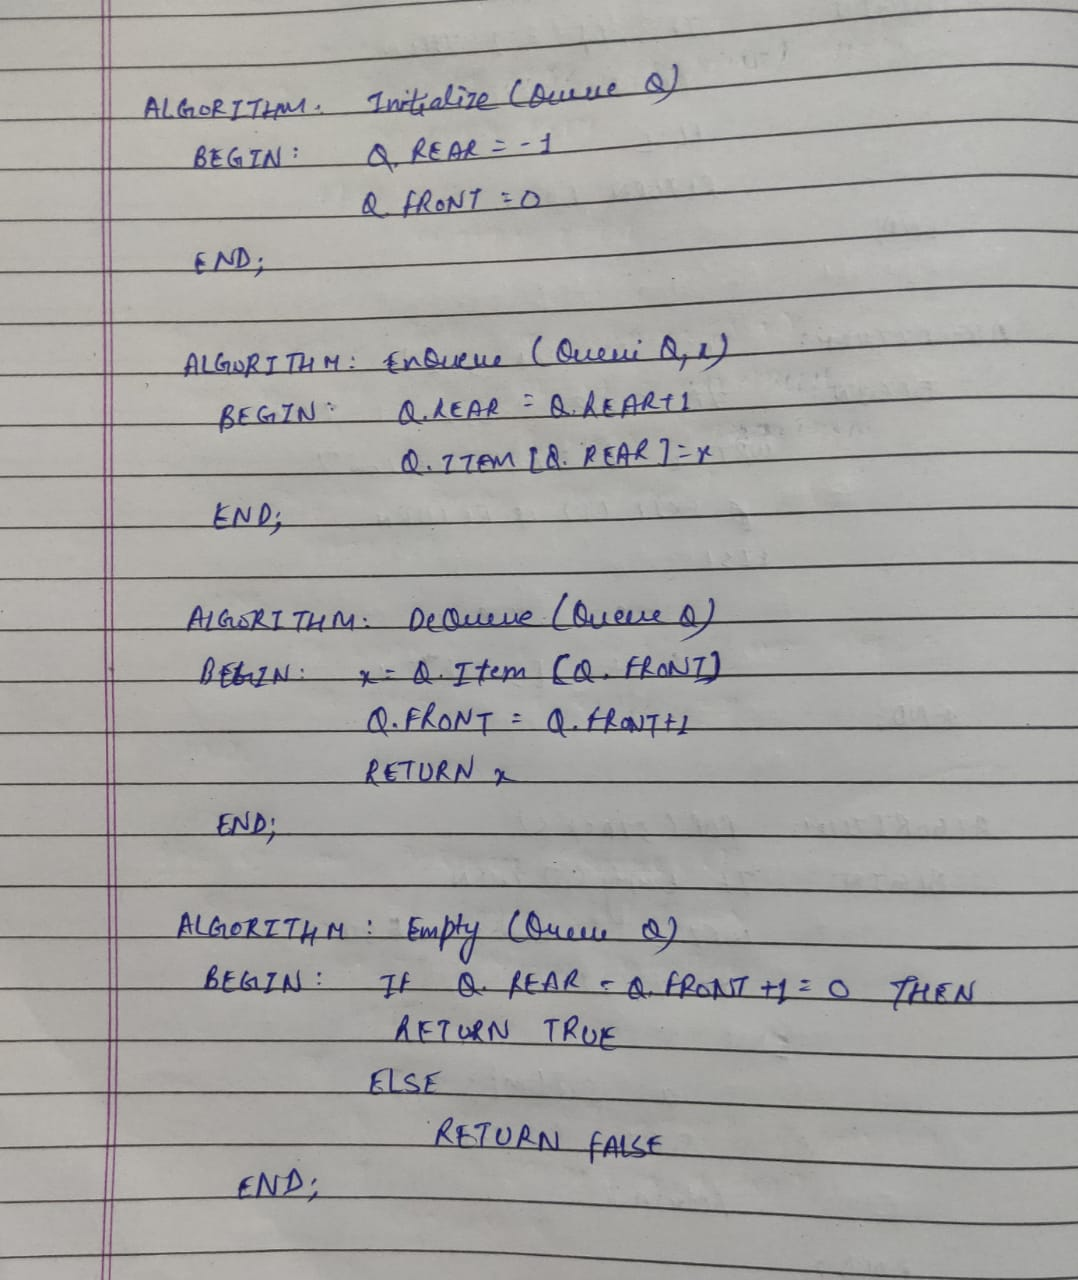 ALGORITHM: Initialize (Queue Q)
BEGIN: Q. REAR = -1
Q. FRONT = 0
END;
ALGORITHM: EnQueue (Queue Q, x)
BEGIN: Q.REAR = Q.REAR+1
Q. ITEM [Q. REAR] = x
END;
ALGORITHM: DeQueue (Queue Q)
BEGIN: x = Q. Item [Q. FRONT]
Q. FRONT = Q. FRONT+1
RETURN x
END;
ALGORITHM: Empty (Queue Q)
BEGIN: If Q. REAR - Q. FRONT +1 = 0 THEN
RETURN TRUE
ELSE
RETURN FALSE
END;